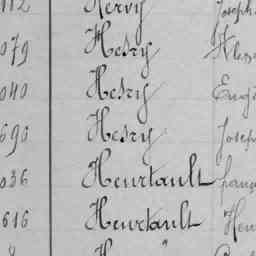 112 Hervy Joseph
079 Hesry
040 Hesry Eug
690 Hesry Josep
036 Heurtault franç
616 Heurtault Hen